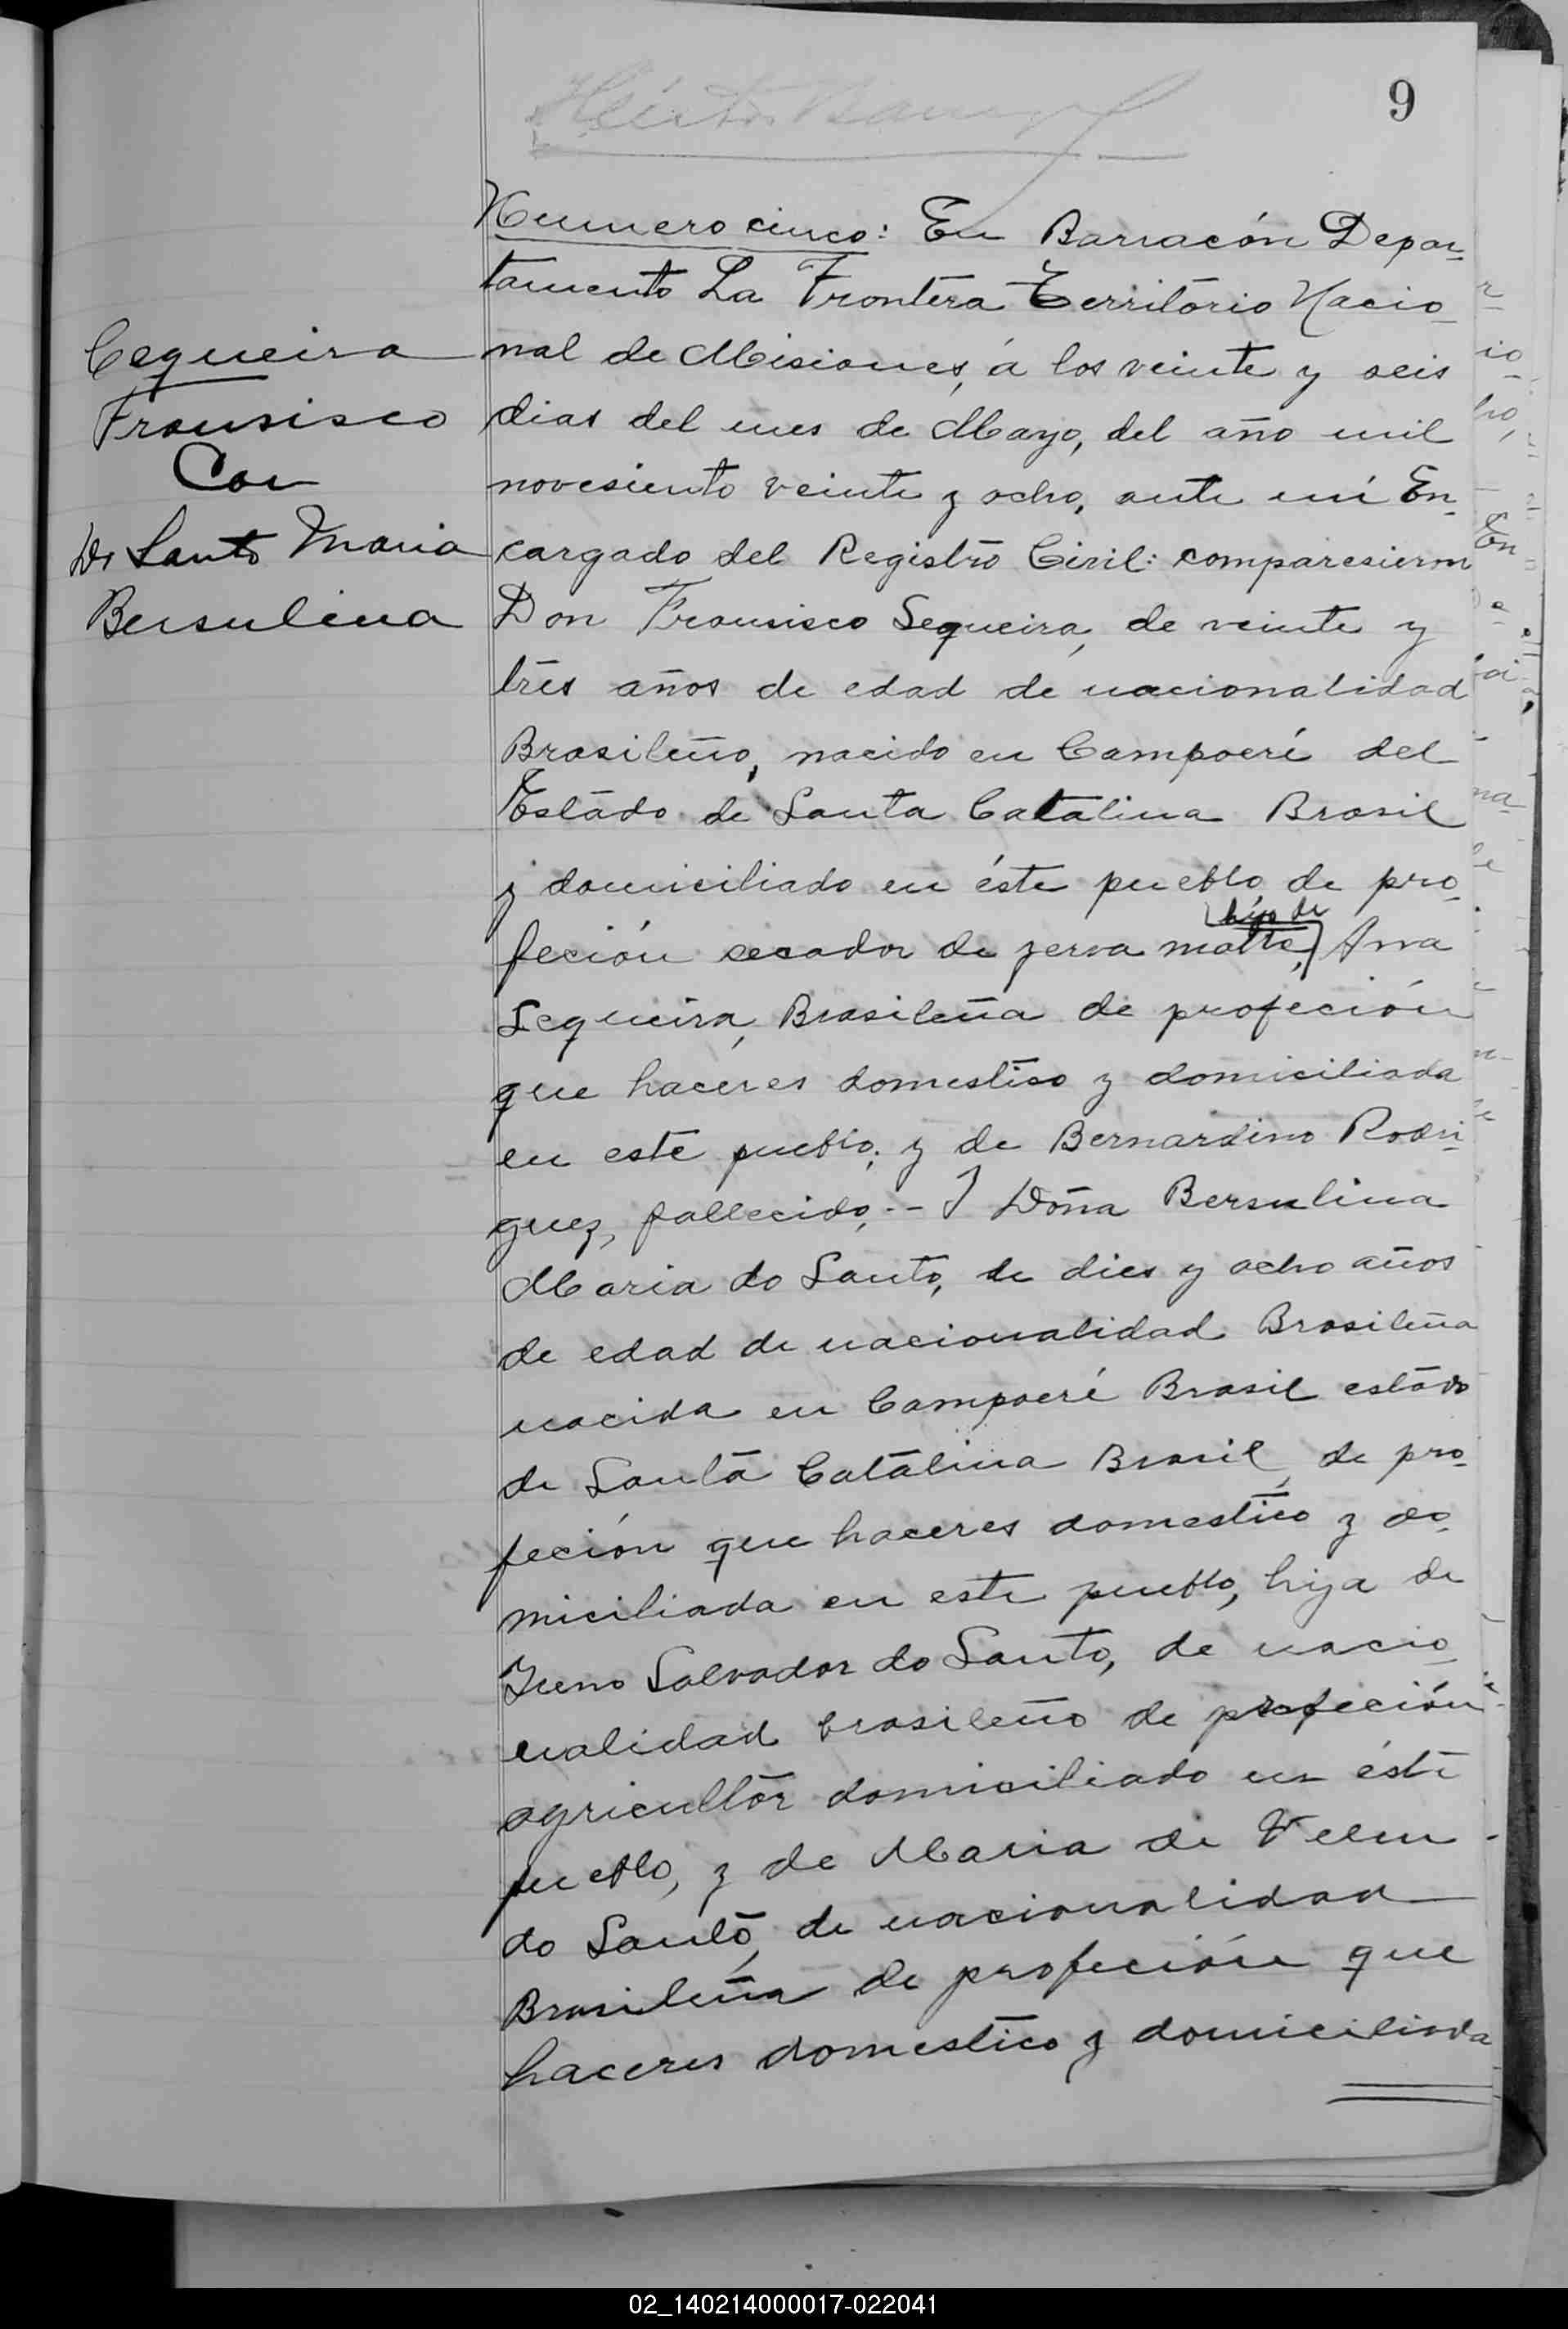 9
Numero cinco: En Barracón Depar-
tamento La Frontera Territorio Nacio-
nal de Misiones, á los veinte y seis
dias del mes de Mayo, del año mil
novesiento veinte y ocho, ante mí En-
cargado del Registro Civil: comparesieron
Don Fransisco Sequeira, de veinte y
tres años de edad de nacionalidad
Brasileño, nacido en Campoeré del
Estado de Santa Catalina Brasil
y domiciliado en éste pueblo de pro-
feción secador de yerva matte, hijo de Ana
Sequeira, Brasileña de profeción
que haceres domestico y domiciliada
en este pueblo; y de Bernardino Rodri-
guez, fallecido,-- Y Doña Bersulina
Maria do Santo, de dies y ocho años
de edad de nacionalidad Brasileña
nacida en Campoeré Brasil estado
de Santa Catalina Brasil, de pro-
feción que haceres domestico y do-
miciliada en este pueblo, hija de
Salvador do Santo, de nacio-
nalidad brasileño de profeción
agricultor domiciliado en éste
pueblo, y de Maria de
do Santo, de nacionalidad
Brasileña de profeción que
haceres domestico y domiciliada
Cequeira
Fransisco
Con
Do Santo Maria
Bersulina
02_140214000017-022041